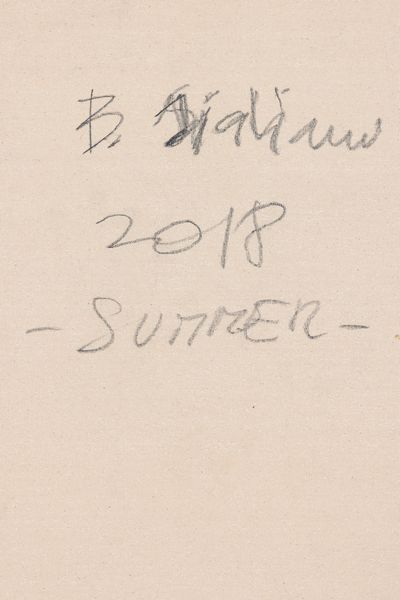 B.
2018
- SUMMER -